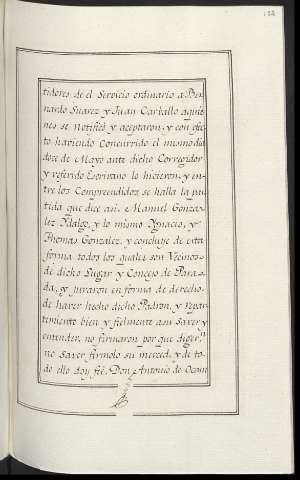 122
tidores de el Servicio ordinario a Ber-
nardo Suarez y Juan Carballo aquie-
nes se notificó y aceptaron, y con efec-
to haviendo Concurrido el mismo dia
doce de Mayo ante dicho Corregidor
y referido Escrivano lo hicieron, y en-
tre los Comprendidos se halla la par-
tida que dice asi. Manuel Gonza-
lez Ydalgo, y lo mismo Ygnacio, y
Thomas Gonzalez, y concluye de esta
forma todos los quales son Vecinos
de dicho Lugar y Concejo de Para-
da, y juraron en forma de derecho
de haver hecho dicho Padron, y repar-
timiento bien y fielmente asu Saver y
entender, no firmaron por que digeron
no Saver firmolo su merced, y de to-
do ello doy feé. Don Antonio de Ocam